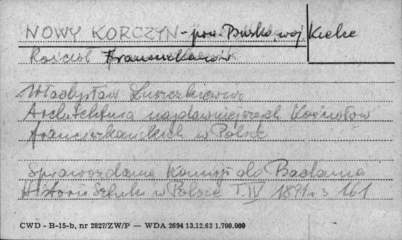 NOWY KORCZYN - pow. Busko, woj Kielce
Kościół Franciszkanów
Władysław Łuszczkiewicz
Architektura najdawniejszych Kościołów
franciszkańskich w Polsce
Sprawozdania Komisji do Badania
Historii Sztuki w Polsce T. IV 1891 s 161
CWD - B-15-b, nr 2827/ZW/P — WDA 2694 13.12.62 1.700.000